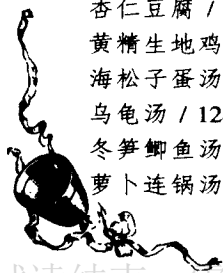 杏仁豆腐 /
黄精生地鸡
海松子蛋汤
乌龟汤 / 12
冬笋鲫鱼汤
萝卜连锅汤